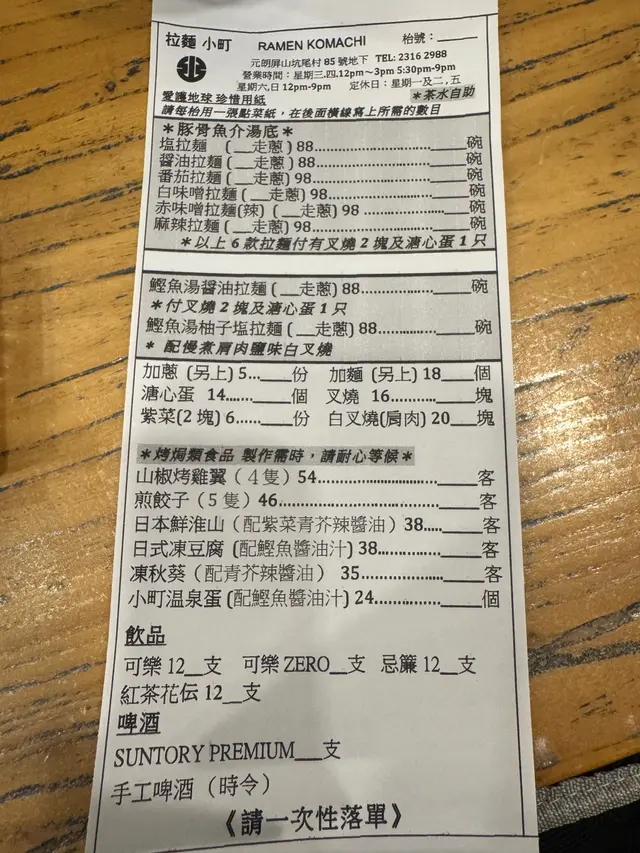 拉麵 小町 RAMEN KOMACHI 枱號：______
元朗屏山坑尾村 85 號地下 TEL: 2316 2988
營業時間：星期三.四.12pm～3pm 5:30pm-9pm
星期六,日 12pm-9pm 定休日：星期一及二, 五
愛護地球 珍惜用紙 ＊茶水自助
請每枱用一張點菜紙，在後面橫線寫上所需的數目
＊豚骨魚介湯底＊
塩拉麵 (__走蔥) 88......____碗
醤油拉麵 (__走蔥) 88......____碗
番茄拉麵 (__走蔥) 98......____碗
白味噌拉麵 (__走蔥) 98......____碗
赤味噌拉麵(辣) (__走蔥) 98......____碗
麻辣拉麵 (__走蔥) 98......____碗
＊以上 6 款拉麵付有叉燒 2 塊及溏心蛋 1 只
鰹魚湯醤油拉麵 (__走蔥) 88......____碗
＊付叉燒 2 塊及溏心蛋 1 只
鰹魚湯柚子塩拉麵 (__走蔥) 88......____碗
＊ 配慢煮肩肉鹽味白叉燒
加蔥 (另上) 5...____份 加麵 (另上) 18____個
溏心蛋 14......____個 叉燒 16......____塊
紫菜(2 塊) 6......____份 白叉燒(肩肉) 20___塊
＊烤焗類食品 製作需時，請耐心等候＊
山椒烤雞翼（４隻）54......____客
煎餃子（５隻）46......____客
日本鮮淮山（配紫菜青芥辣醬油）38.....____客
日式凍豆腐 (配鰹魚醬油汁) 38......____客
凍秋葵（配青芥辣醬油） 35......____客
小町温泉蛋 (配鰹魚醬油汁) 24......____個
飲品
可樂 12__支 可樂 ZERO__支 忌簾 12__支
紅茶花伝 12__支
啤酒
SUNTORY PREMIUM___支
手工啤酒（時令）
《請一次性落單》